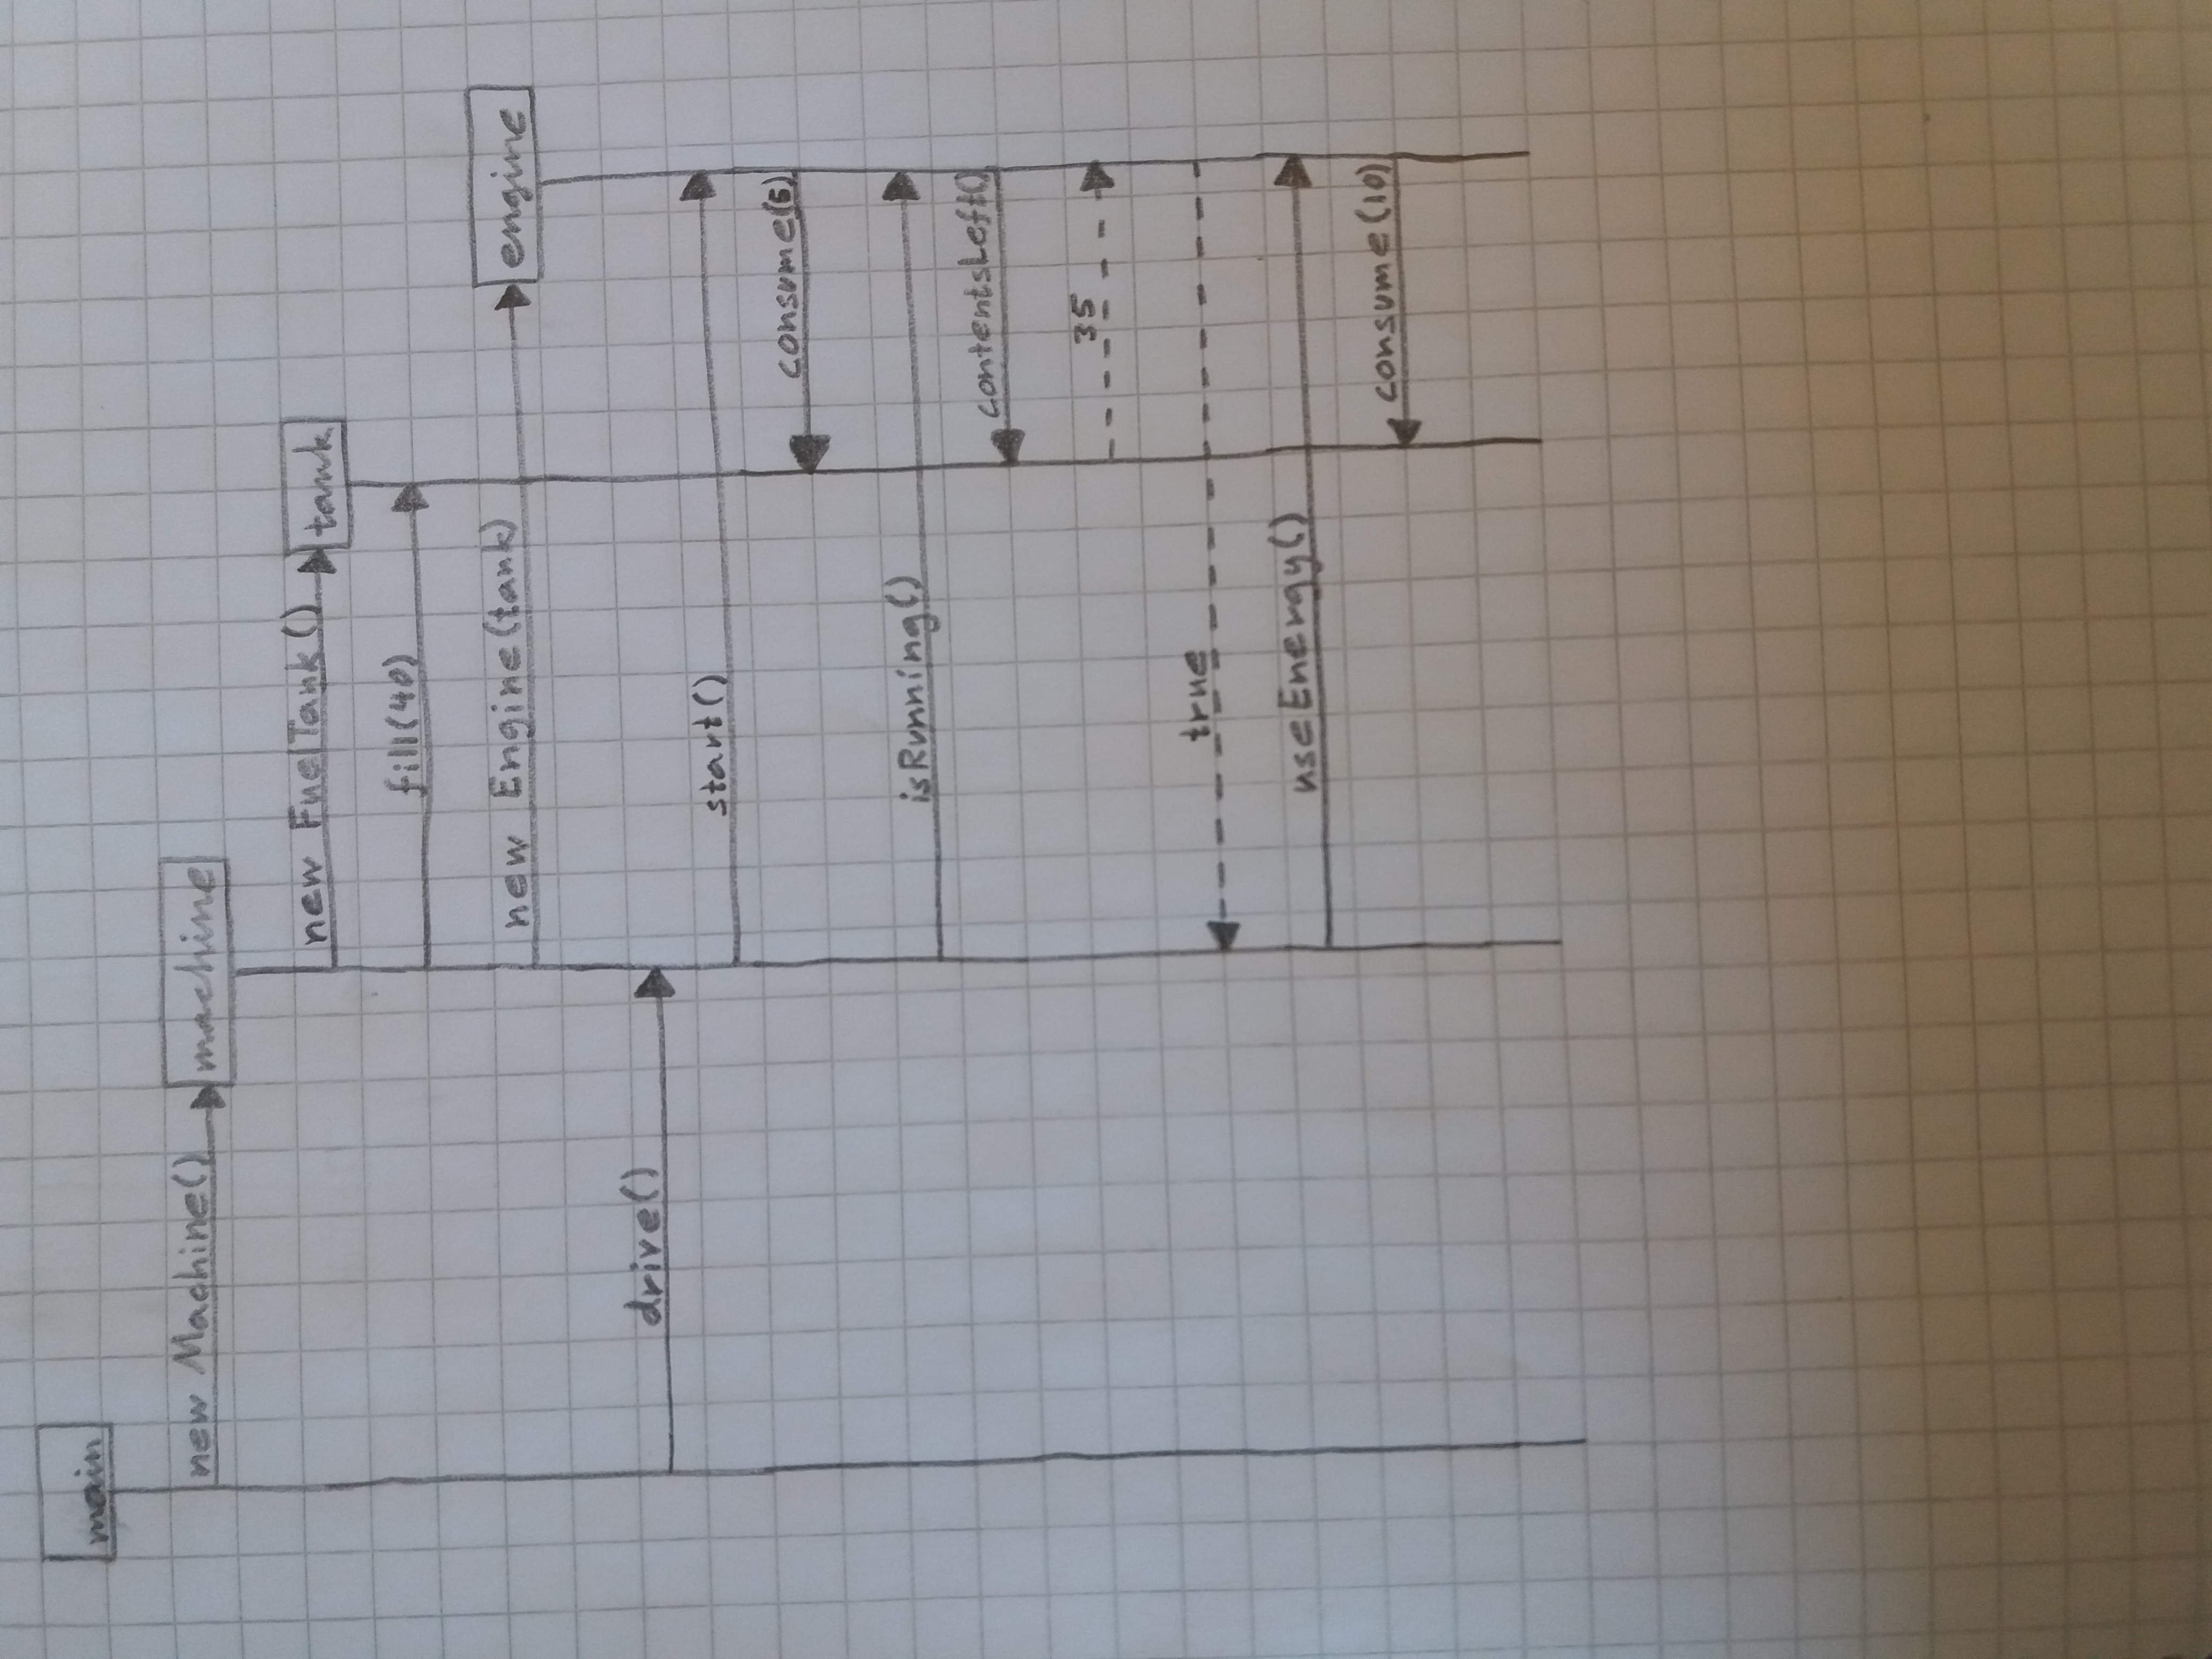 main
new Machine()
machine
new FuelTank()
tank
fill(40)
new Engine(tank)
engine
drive()
start()
consume(5)
isRunning()
contentsLeft()
35
true
useEnergy()
consume(10)